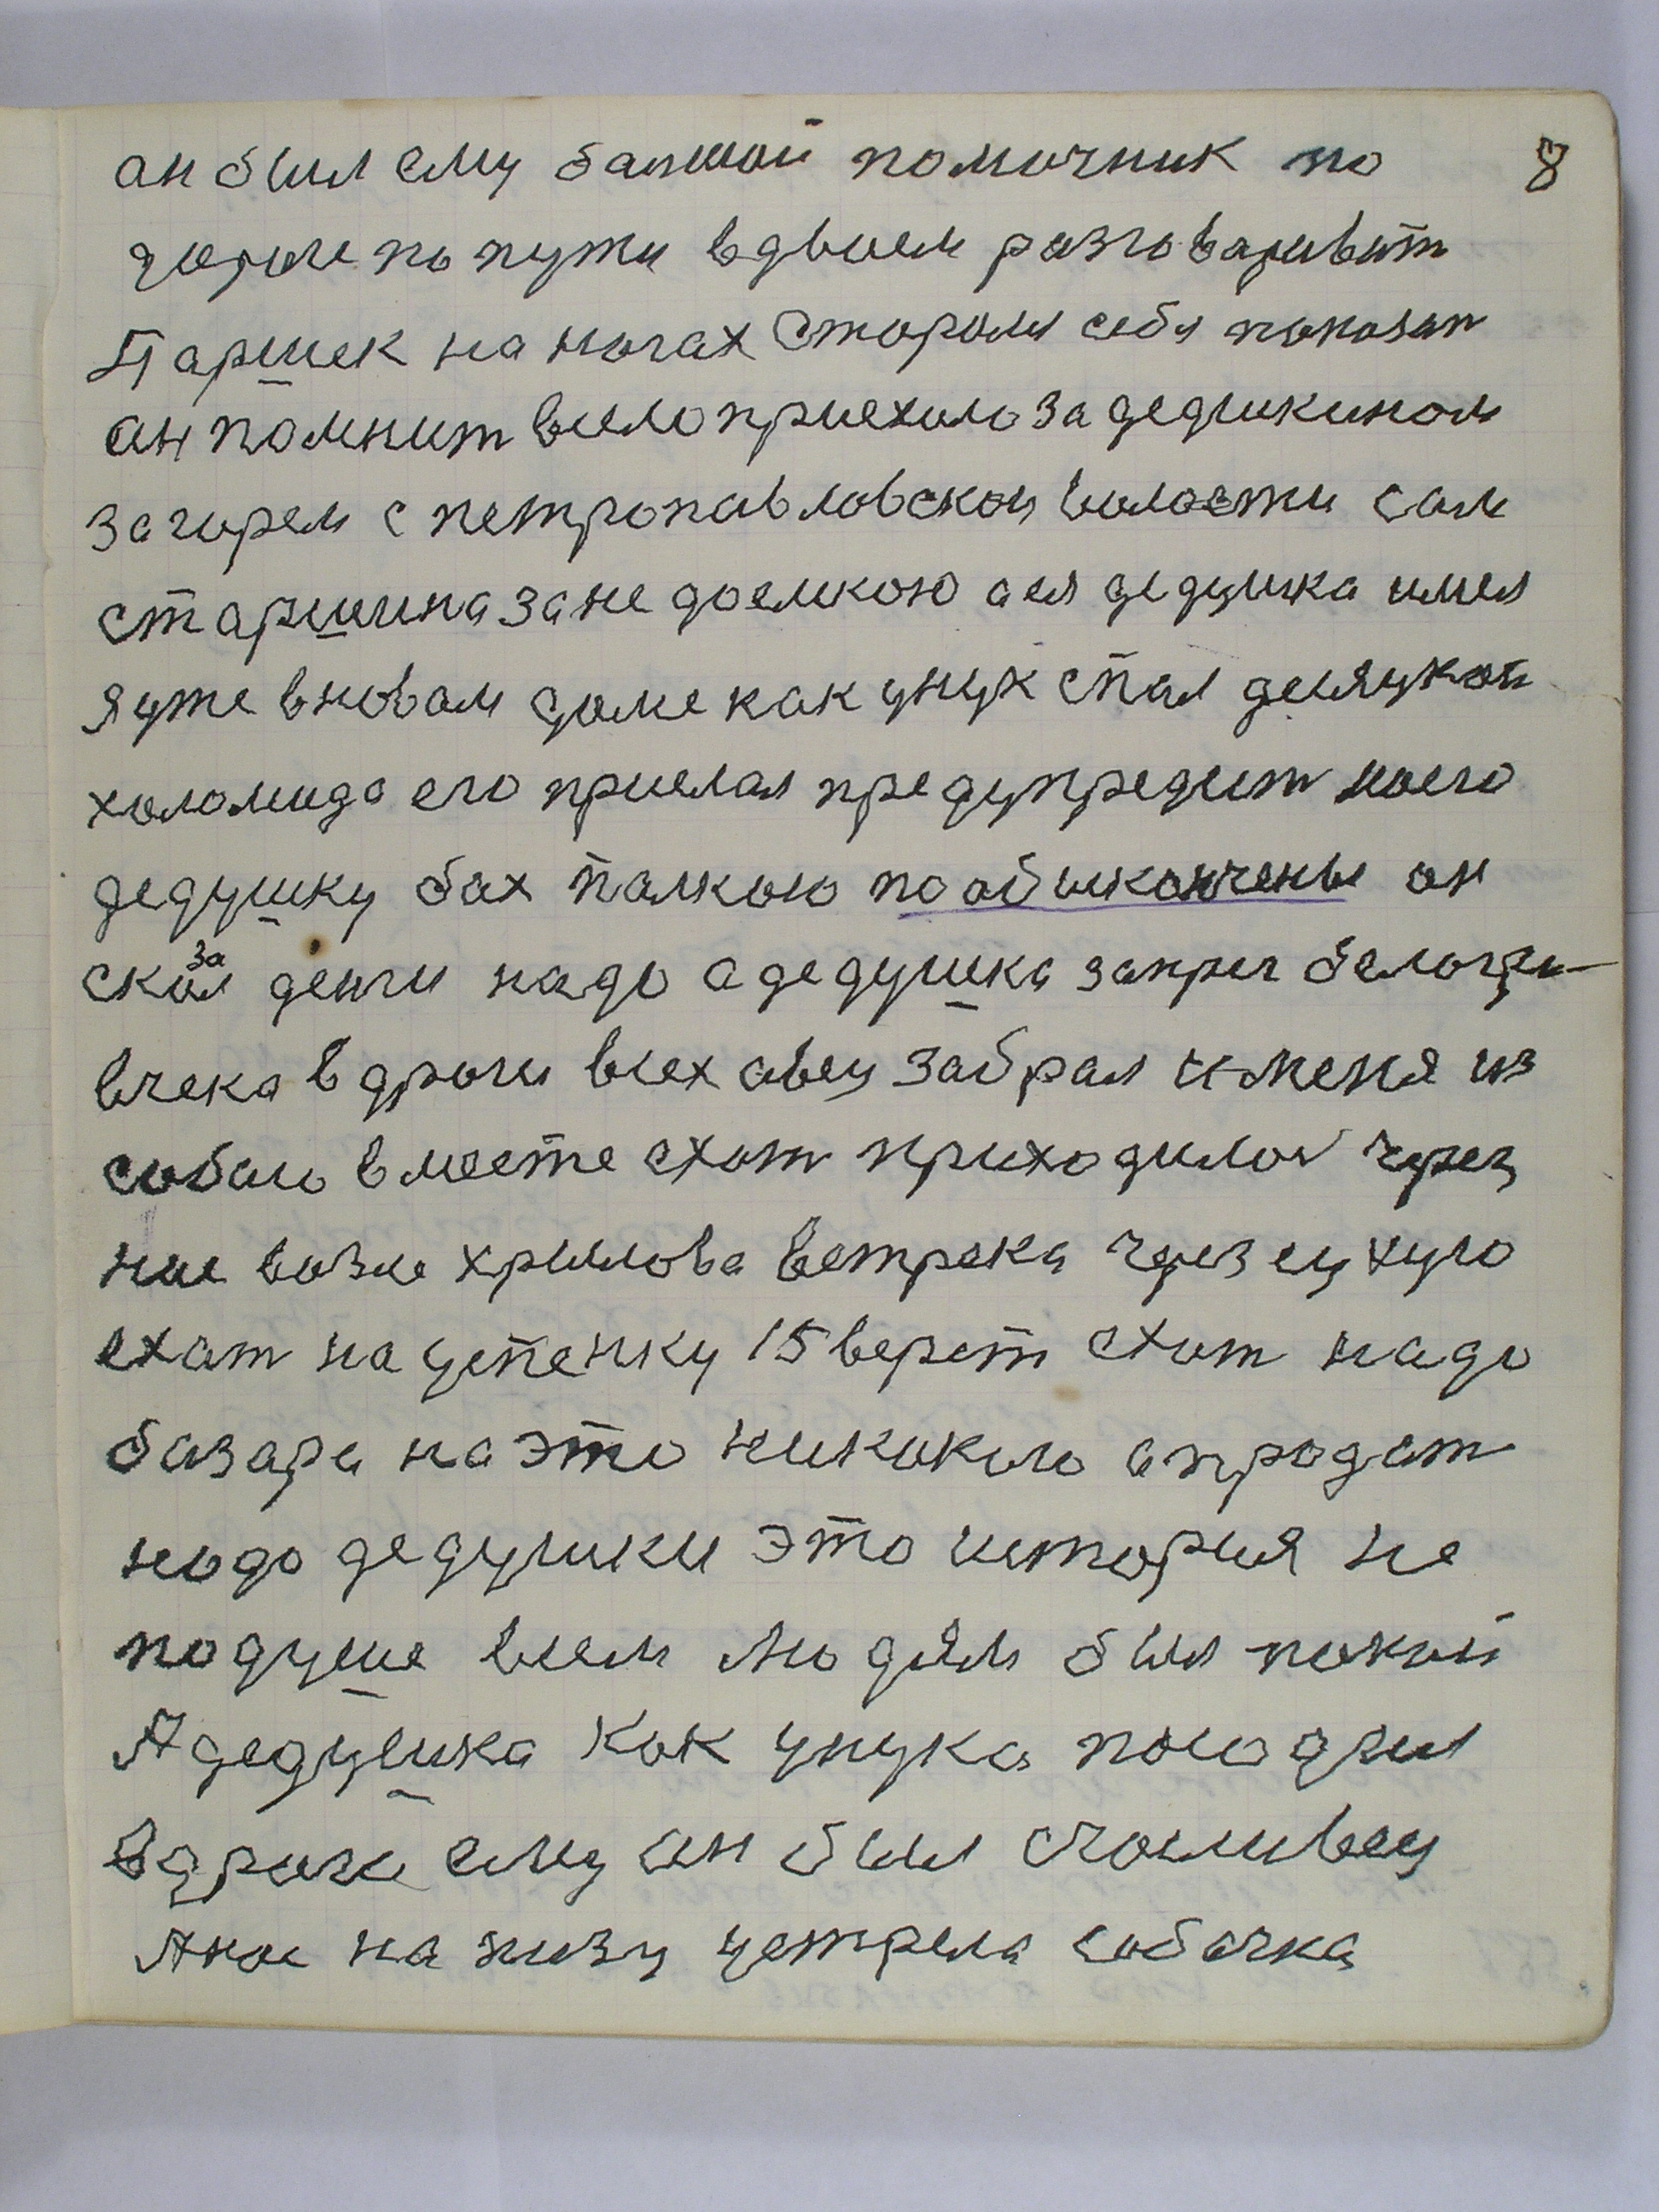 ан был ему балшой помочник по 8
дороге по пути вдвоем разговаривит
Паршек на ногах старом себя показал
ан помнит было приехало за дедушкином
загорем с петропавловской волости сам
старшина за не доемкою а ея дедушка имел
я уже вновам доме как унук спал
холомида его прислал предупредит моего
дедушку бах палкою по обшконченые он
сказал денги надо а дедушка запрег
в дроги всех авец забрал и меня из
собою вместе ехат приходилос через
нее возле хрылова ветрека через сухую
ехат на успенку 15 верст ехат надо
базара на это никокого а продат
нодо дедушки это история не
подуше всем людям был покой
А дедушка как унука посадил
в дроги ему он был счасливец
А нас на низу устрела собачка